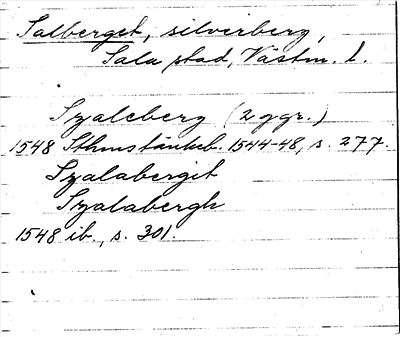 Salberget, silverberg,
Sala stad, Västm. l.
Szaleberg (2 ggr.)
1548 Sthmstänkeb. 1544-48, s. 277.
Szalabergit
Szalabergh
1548 ib., s. 301.